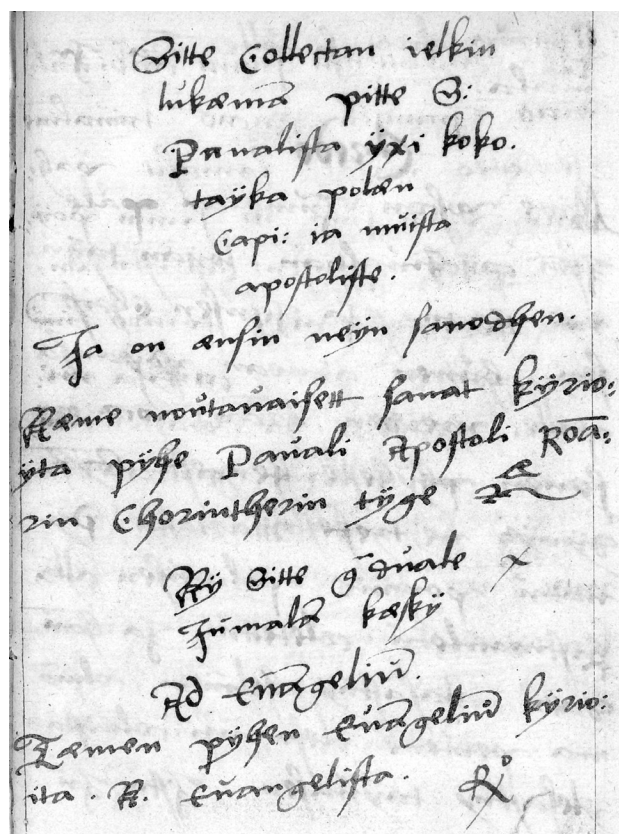 Sitte Collectan ielkin
lukæmā pitte S:
Paualista ÿxi koko.
taÿka polæn
Capi: ia muista
apostoliste.
Ja on ænsin neÿn sanodhen.
Næme noutauaisett sanat kÿrio:
ÿta pÿhe Pauali Apostoli Roā:
rin Chorintherin tÿge
Nÿ Sitte g̃duale
Jumalā kæskÿ
Ad Euāgeliū.
Tæmen pÿhen Euāgeliū kÿrio:
ita. N. Euangelista.